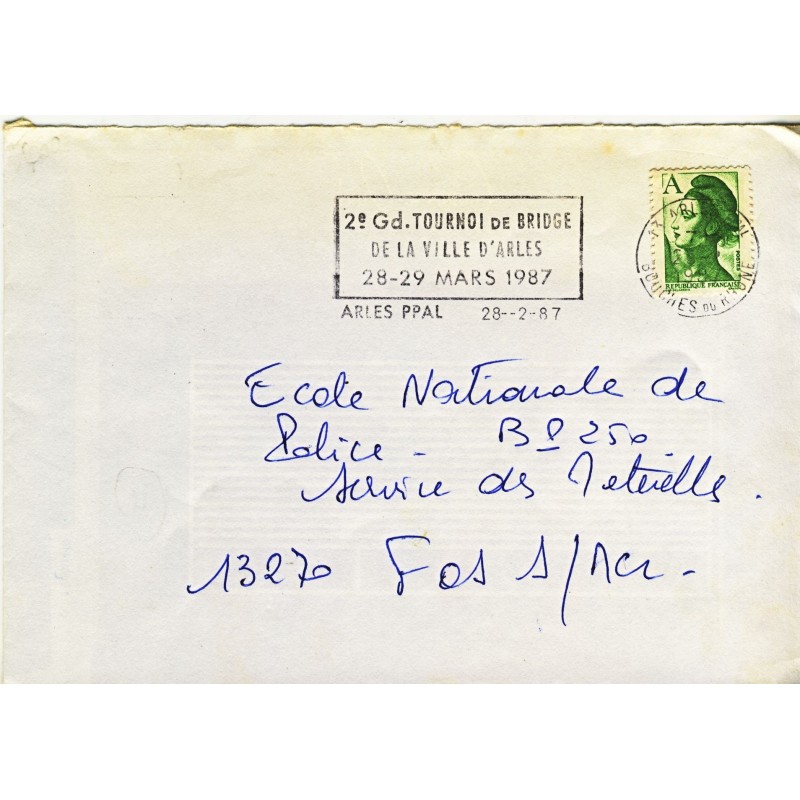 2e Gd. TOURNOI DE BRIDGE
DE LA VILLE D'ARLES
28-29 MARS 1987
ARLES PPAL 28--2-87
A
POSTES
REPUBLIQUE FRANÇAISE
13 ARL
BOUCHES DU RHONE
Ecole Nationale de
Police - BP 250
Service des
13270 Fos S/Mer -